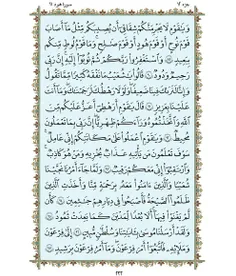 جزء ١٢ سورة هود ١١
وَيَٰقَوْمِ لَا يَجْرِمَنَّكُمْ شِقَاقِىٓ أَن يُصِيبَكُم مِّثْلُ مَآ أَصَابَ
قَوْمَ نُوحٍ أَوْ قَوْمَ هُودٍ أَوْ قَوْمَ صَٰلِحٍ وَمَا قَوْمُ لُوطٍ مِّنكُم
بِبَعِيدٍ ٨٩ وَٱسْتَغْفِرُوا۟ رَبَّكُمْ ثُمَّ تُوبُوٓا۟ إِلَيْهِ إِنَّ رَبِّى
رَحِيمٌ وَدُودٌ ٩٠ قَالُوا۟ يَٰشُعَيْبُ مَا نَفْقَهُ كَثِيرًا مِّمَّا تَقُولُ
وَإِنَّا لَنَرَىٰكَ فِينَا ضَعِيفًا وَلَوْلَا رَهْطُكَ لَرَجَمْنَٰكَ وَمَآ أَنتَ
عَلَيْنَا بِعَزِيزٍ ٩١ قَالَ يَٰقَوْمِ أَرَهْطِىٓ أَعَزُّ عَلَيْكُم مِّنَ ٱللَّهِ
وَٱتَّخَذْتُمُوهُ وَرَآءَكُمْ ظِهْرِيًّا إِنَّ رَبِّى بِمَا تَعْمَلُونَ
مُحِيطٌ ٩٢ وَيَٰقَوْمِ ٱعْمَلُوا۟ عَلَىٰ مَكَانَتِكُمْ إِنِّى عَٰمِلٌ
سَوْفَ تَعْلَمُونَ مَن يَأْتِيهِ عَذَابٌ يُخْزِيهِ وَمَنْ هُوَ كَٰذِبٌ
وَٱرْتَقِبُوٓا۟ إِنِّى مَعَكُمْ رَقِيبٌ ٩٣ وَلَمَّا جَآءَ أَمْرُنَا نَجَّيْنَا
شُعَيْبًا وَٱلَّذِينَ ءَامَنُوا۟ مَعَهُۥ بِرَحْمَةٍ مِّنَّا وَأَخَذَتِ ٱلَّذِينَ
ظَلَمُوا۟ ٱلصَّيْحَةُ فَأَصْبَحُوا۟ فِى دِيَٰرِهِمْ جَٰثِمِينَ ٩٤ كَأَن
لَّمْ يَغْنَوْا۟ فِيهَآ أَلَا بُعْدًا لِّمَدْيَنَ كَمَا بَعِدَتْ ثَمُودُ ٩٥
وَلَقَدْ أَرْسَلْنَا مُوسَىٰ بِـَٔايَٰتِنَا وَسُلْطَٰنٍ مُّبِينٍ ٩٦ إِلَىٰ فِرْعَوْنَ
وَمَلَإِي۟هِۦ فَٱتَّبَعُوٓا۟ أَمْرَ فِرْعَوْنَ وَمَآ أَمْرُ فِرْعَوْنَ بِرَشِيدٍ ٩٧
٢٣٢